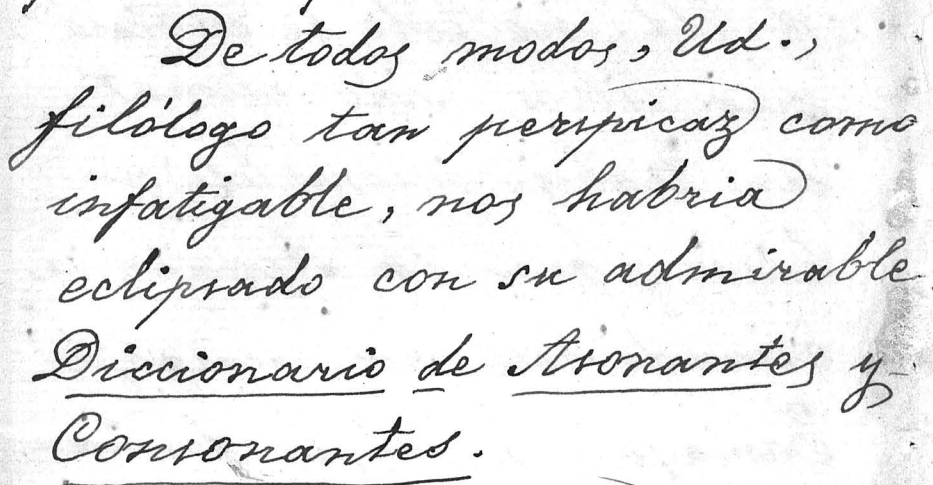 De todos modos, Ud.,
filólogo tan perspicaz como
infatigable, nos habria
eclipsado con su admirable
Diccionario de Asonantes y
Consonantes.